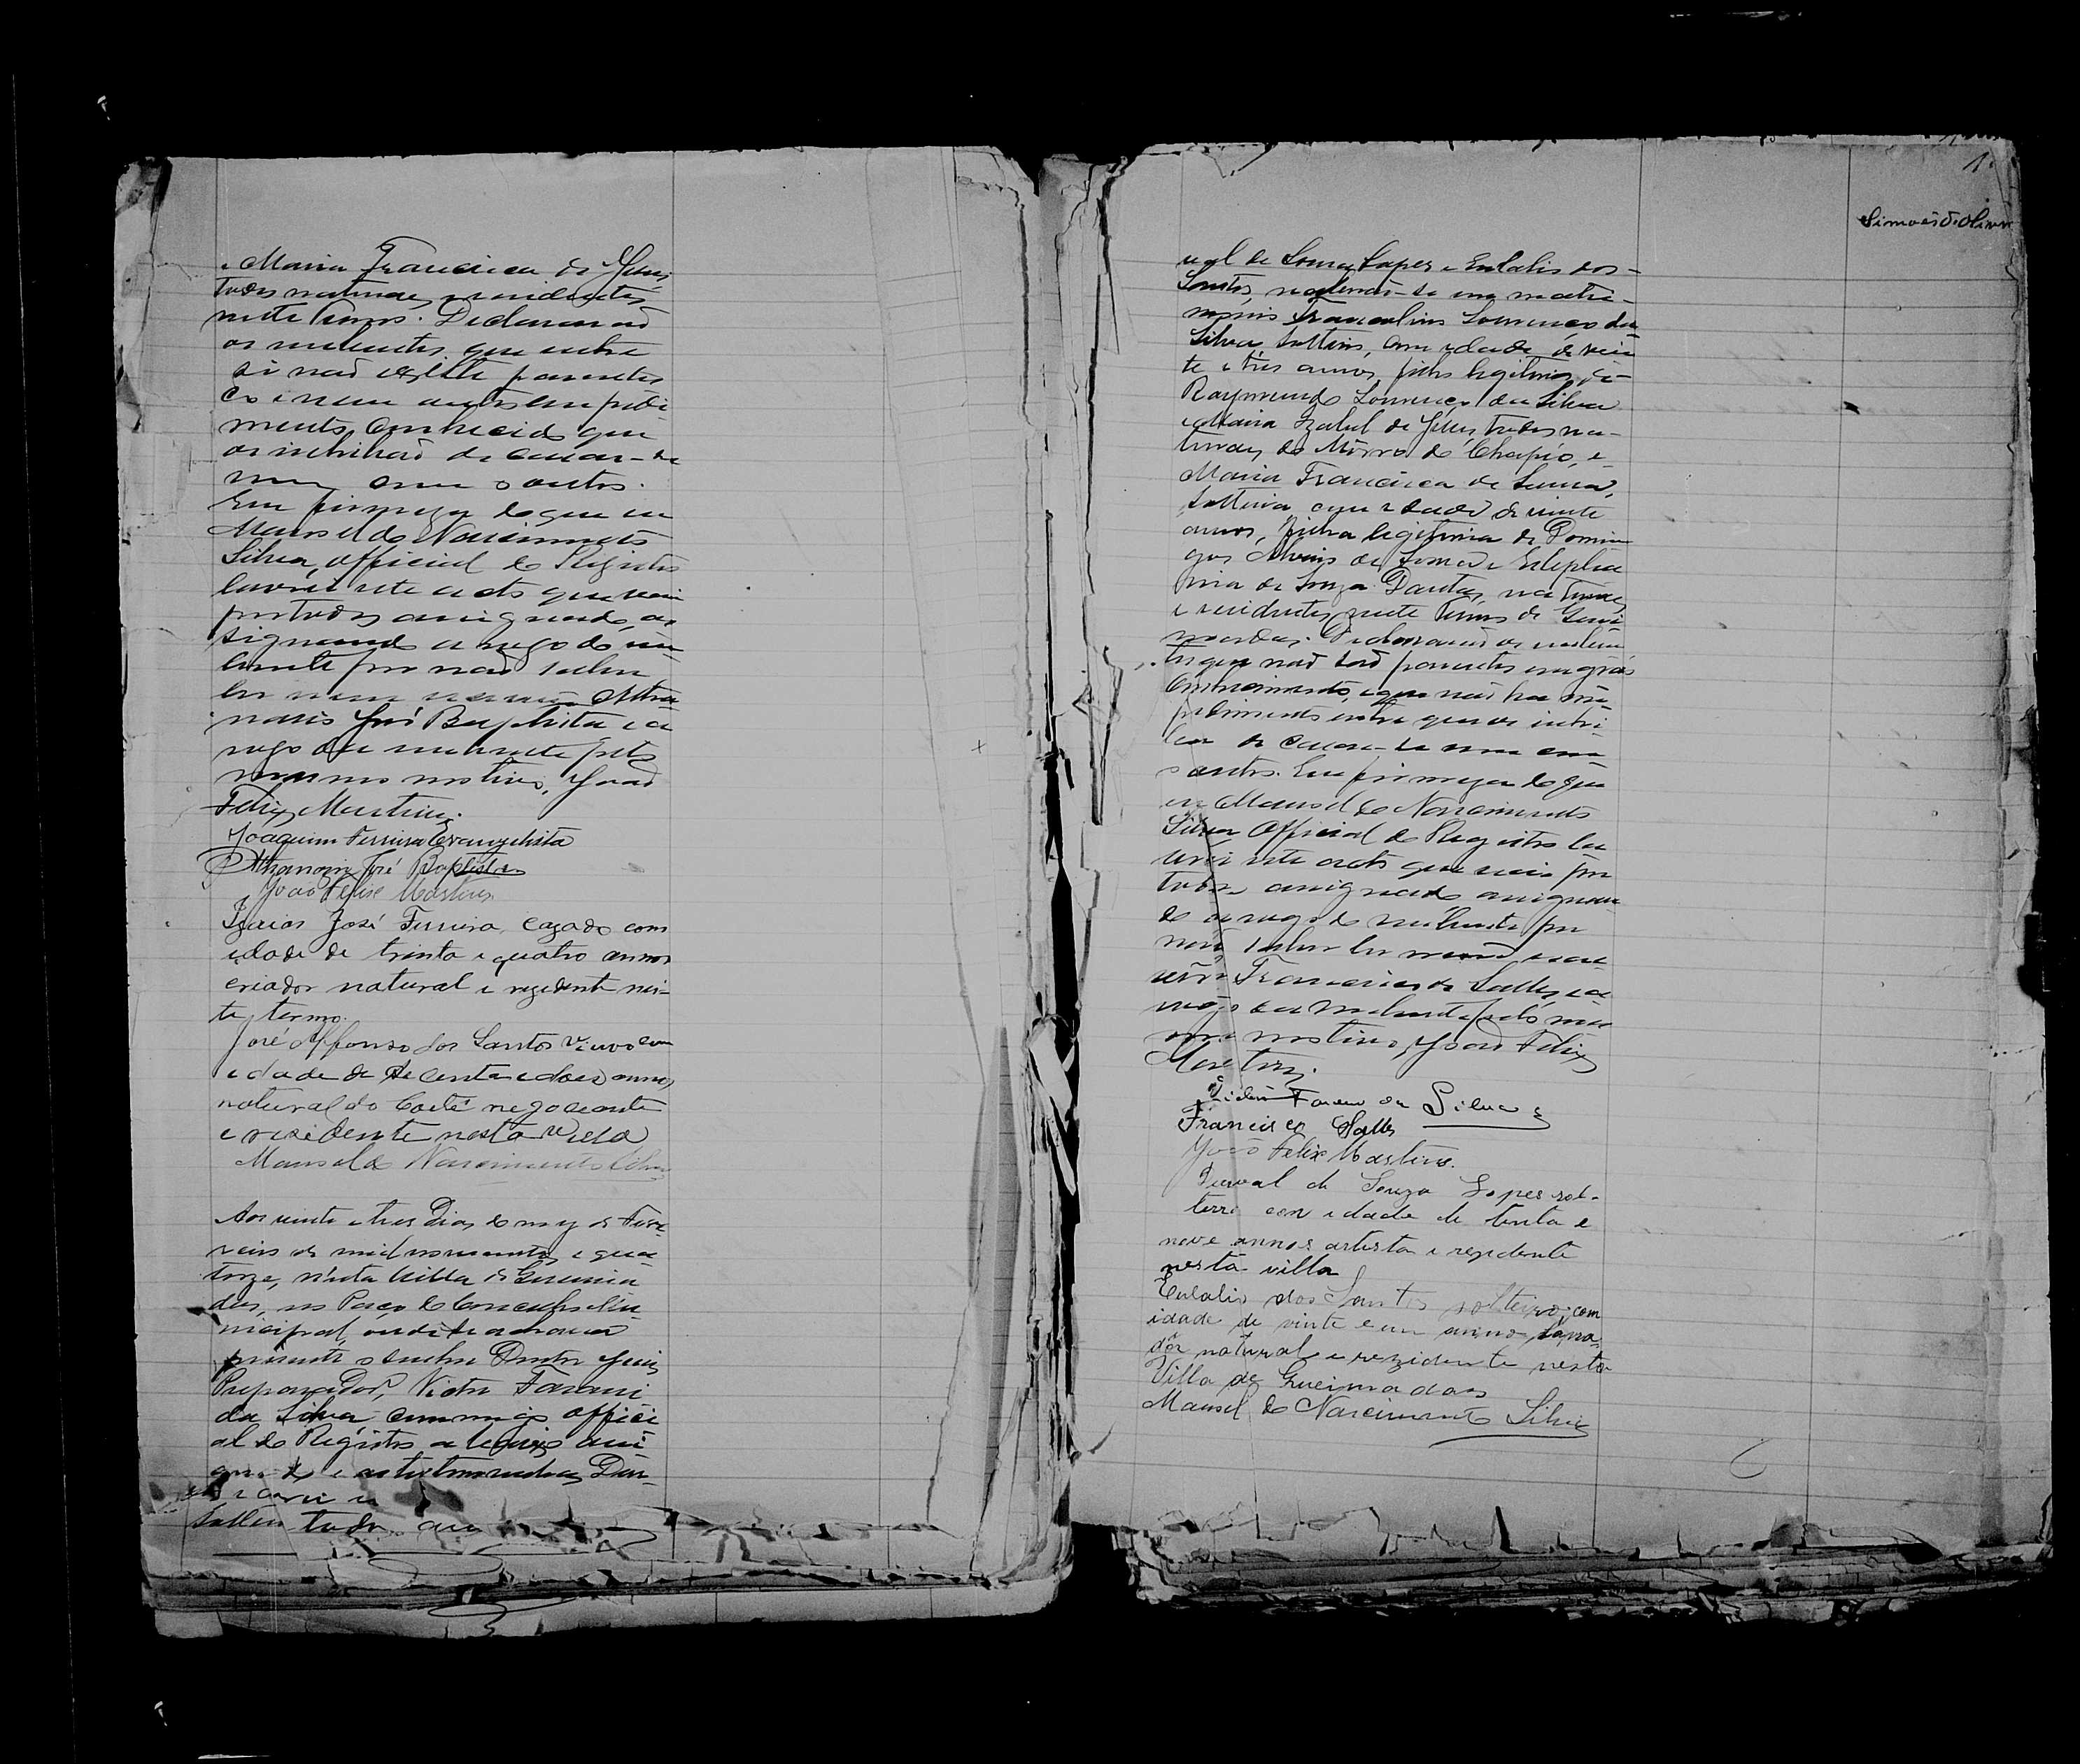 e Maria Francisca de Jesus,
todos naturaes e residentes
neste termo. Declararaõ
os nubentes, que entre
si naõ existe parentes
co e nem outro empidi
mento conhecido que
os inhibaõ de casar-se
um com o outro.
Em firmeza do que eu
Manoel do Nascimento
Silva, official do Registro
lavrei este acto que vai
por todos assignado, as
signando a rogo do nu
bente por naõ saber
ler nem escrever Atha
nasio José Baptista e a
rogo da nubente pelo
mesmo motivo, Joaõ
Felix Martins.
Joaquim Ferreira Evangelista
Athanazio José Baptista
João Felix Martins
Izaias José Ferreira, cazado com
idade de trinta e quatro annos
criador natural e rezidente nes-
te termo.
José Affonso dos Santos viuvo com
idade de secenta e dois annos
natural do Coité negociante
e residente nesta villa
Manoel do Nascimento Silva
Aos vinte e tres dias do mez de Feve
reiro de mil novecentos e qua
torze, n'esta Villa de Queima
das, no Paço do Concelho Mu
nicipal, onde se achava
presente o senhor Doutor Juiz
Preparador, Victor Farani
da Silva commigo offici
al do Registro a legugo assi
gnado e as testemunhas Dur
tudo
1.
Simões d. Olivr
val de Souza Lopes e Eulalio dos-
Santos, receberaõ-se em matri-
monio Francolino Lourenço da
Silva solteiro, com idade de vin
te e trés annos, filho legitimo de
Raymundo Lourenço da Silva
e Maria Izabel de Jesus, todos na-
turaes do Môrro do Chapéo, e
Maria Francisca de Souza,
solteira, com idade de vinte
annos, filha legitima de Domin
gos Alves de Souza e
de Souza Dantas, naturaes
e residentes neste termo de Quei
madas. Declararaõ os nuben
tes que naõ saõ parentes em gráo
conhecimento, e que naõ ha im
pedimento outro que os inhi
ba de casar-se um com
o outro. Em firmeza do que
eu Manoel do Nascimento
Silva Official do Registro la
vrei este acto que vai por
todos assignado assignan
do a rogo do nubente por
naõ saber ler nem escre
ver Francisco Salles, e a
rogo da nubente pelo mes
mo motivo, Joaõ Felix
Martins.
Victor Farani da Silva
Francisco Salles
João Felix Martins.
Durval de Souza Lopes sol-
teiro com idade de trinta e
nove annos artista e rezidente
nesta villa
Eulalio dos Santos solteiro, com
idade de vinte e um annos lavra
dor natural e rezidente nesta
Villa de Queimadas
Manoel do Nascimento Silva